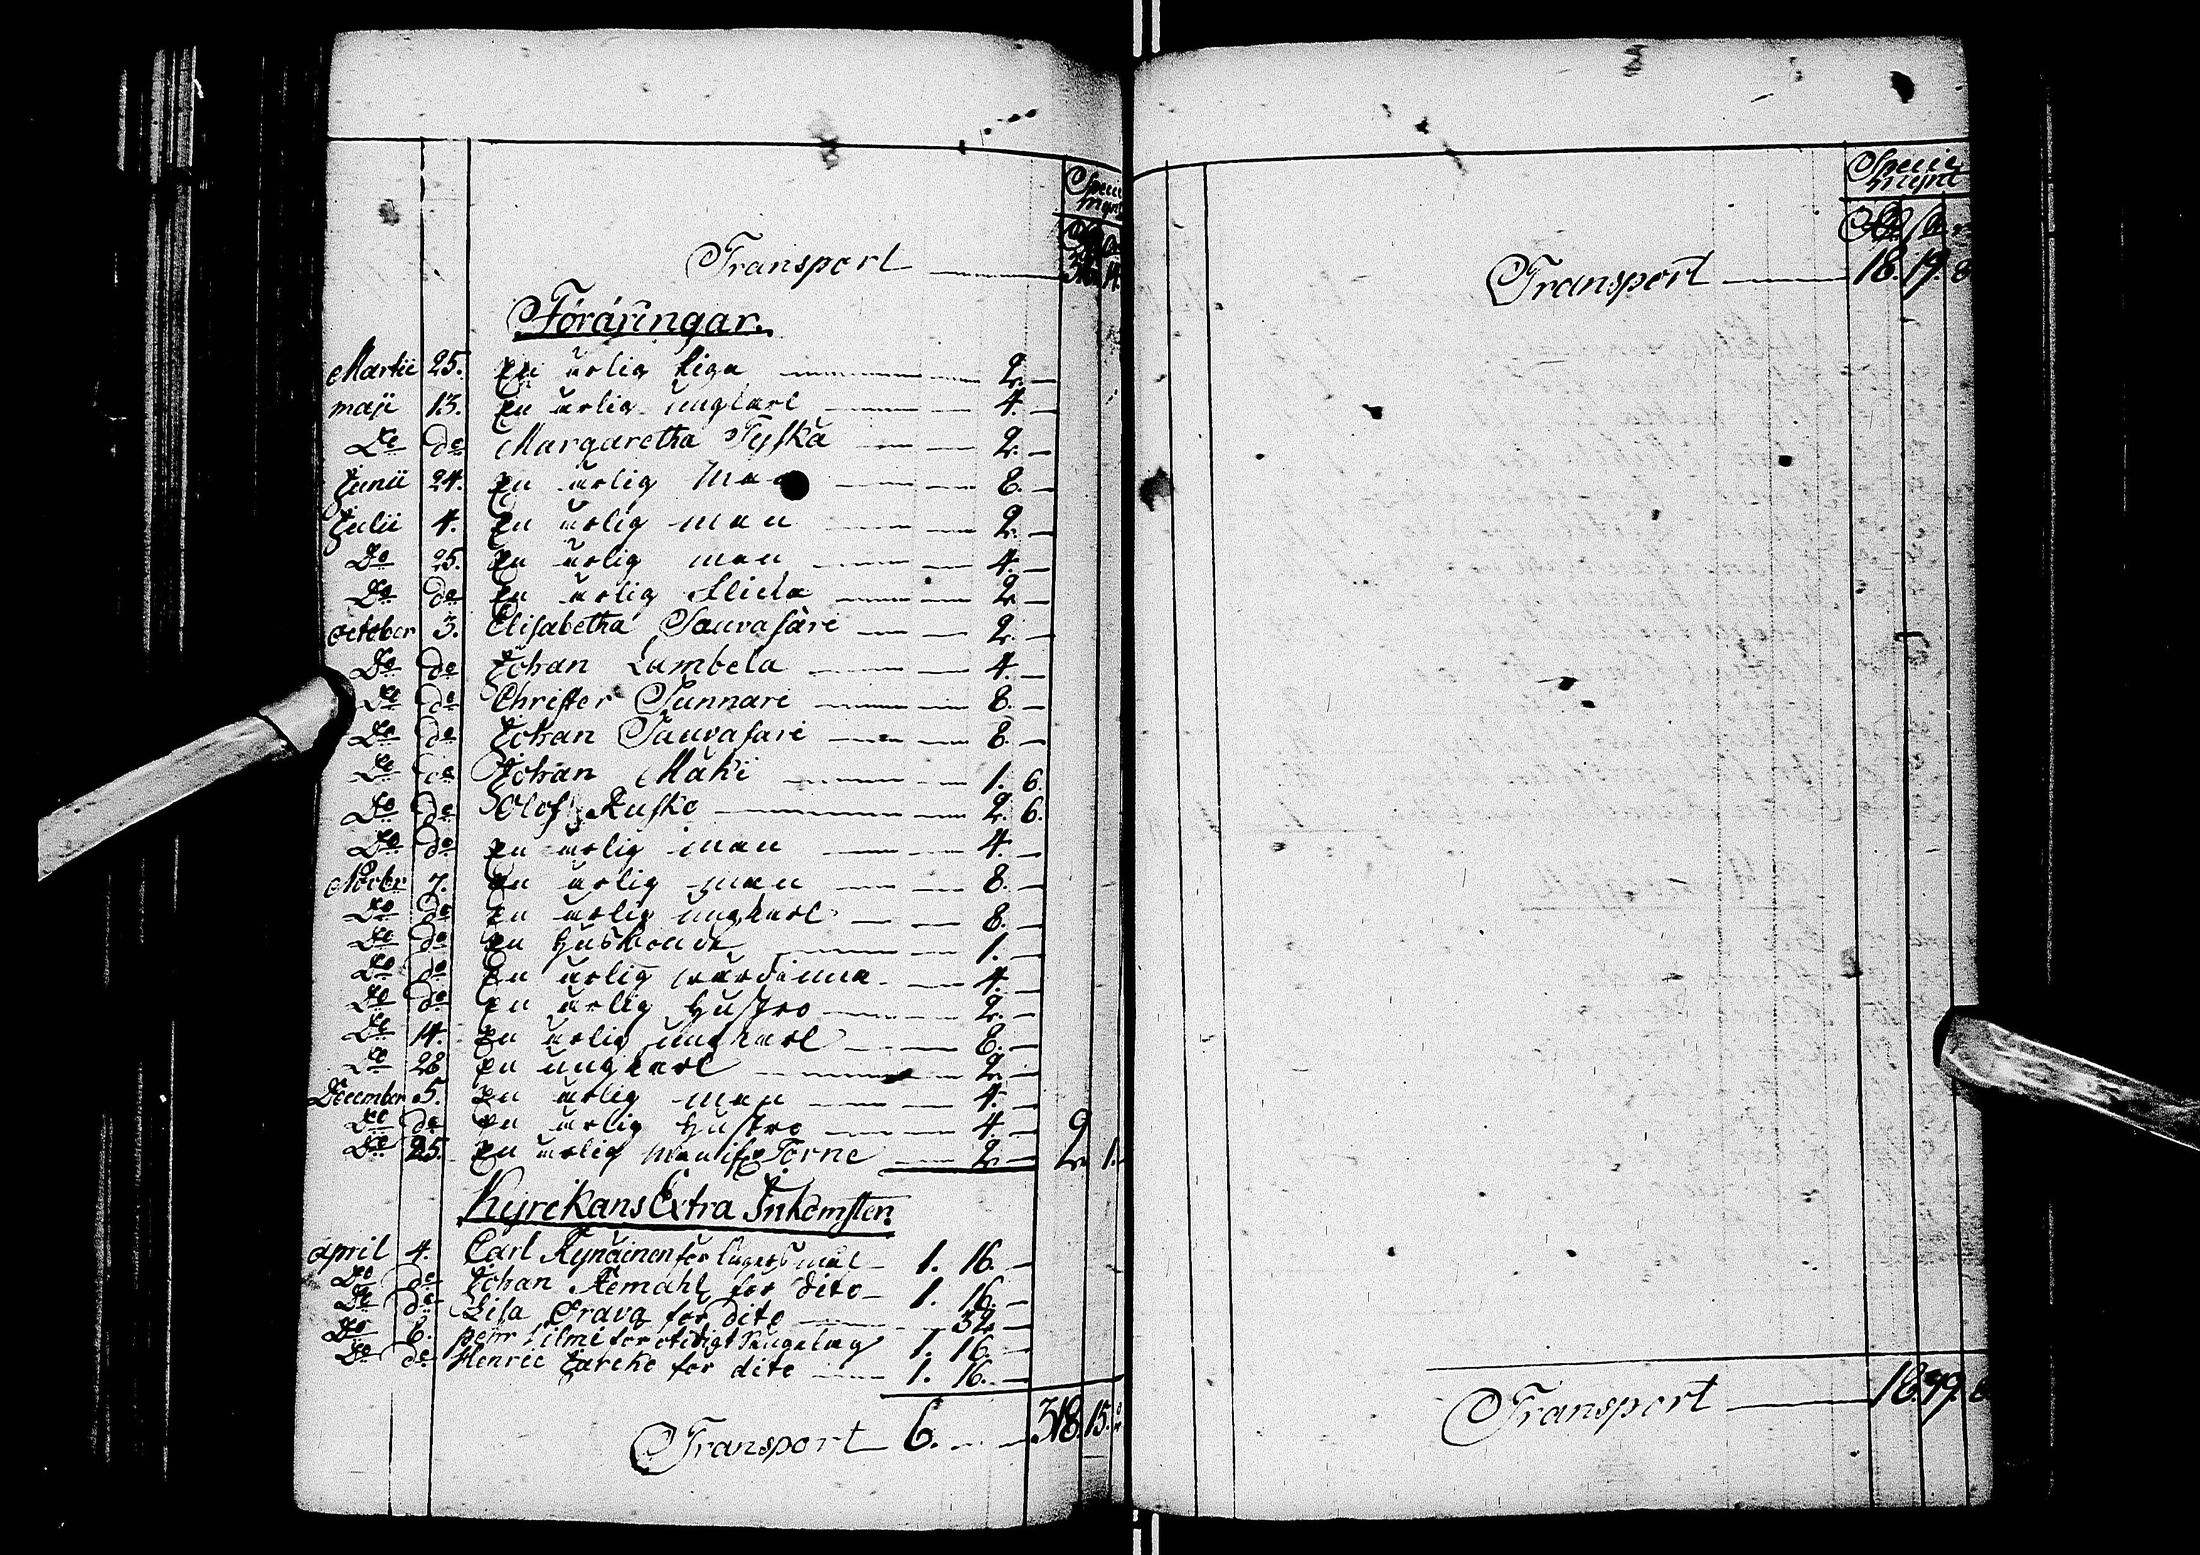 Specie
mynt
Transport
Föräringar.
Martii 25. En ärlig Piga 2. —
maji 13. En ärlig ungkarl 4. —
Do do Margaretha Tyska 2. —
Junii 24. En ärlig Man 8. —
Julii 4. En ärlig man 2. —
Do 25. En ärlig man 4. —
Do do En ärlig Flicka 2. —
October 3. Elisabetha Sauvasare 2. —
Do do Johan Lambela 4. —
Do do Christer Sunnari 8. —
Do do Johan Sauvasari 8. —
Do do Johan Maki 1. 6.
Do do Olof Ruske 2. 6.
Do do En ärlig man 4. —
Novbr 7. En ärlig man 8. —
Do do En ärlig ungkarl 8. —
Do do En Husbonde 1. —
Do do En ärlig wärdinna 4. —
Do do En ärlig Hustro 2. —
Do 14. En ärlig ungkarl 6. —
Do 28 En ungkarl 2. —
December 5. En ärlig man 4. —
Do do En ärlig Hustro 4. —
Do 25. En ärlig man ifr Torne 2. — 2. 1.
Kyrckans Extra Inkomster
april 4. Carl Kynäinen för Lägersmål 1. 16. —
Do do Johan Remahl för dito 1. 16. —
Do do Lisa Grava för Dito 32. —
Do 6. pehr Filmi för otidigt Sängelag 1. 16. —
Do do Henric Jareko för dito 1. 16. —
Transport 6. — 318. 15.
Specie
mynt
Transport 18. 19. 8
Transport 18. 19. 8